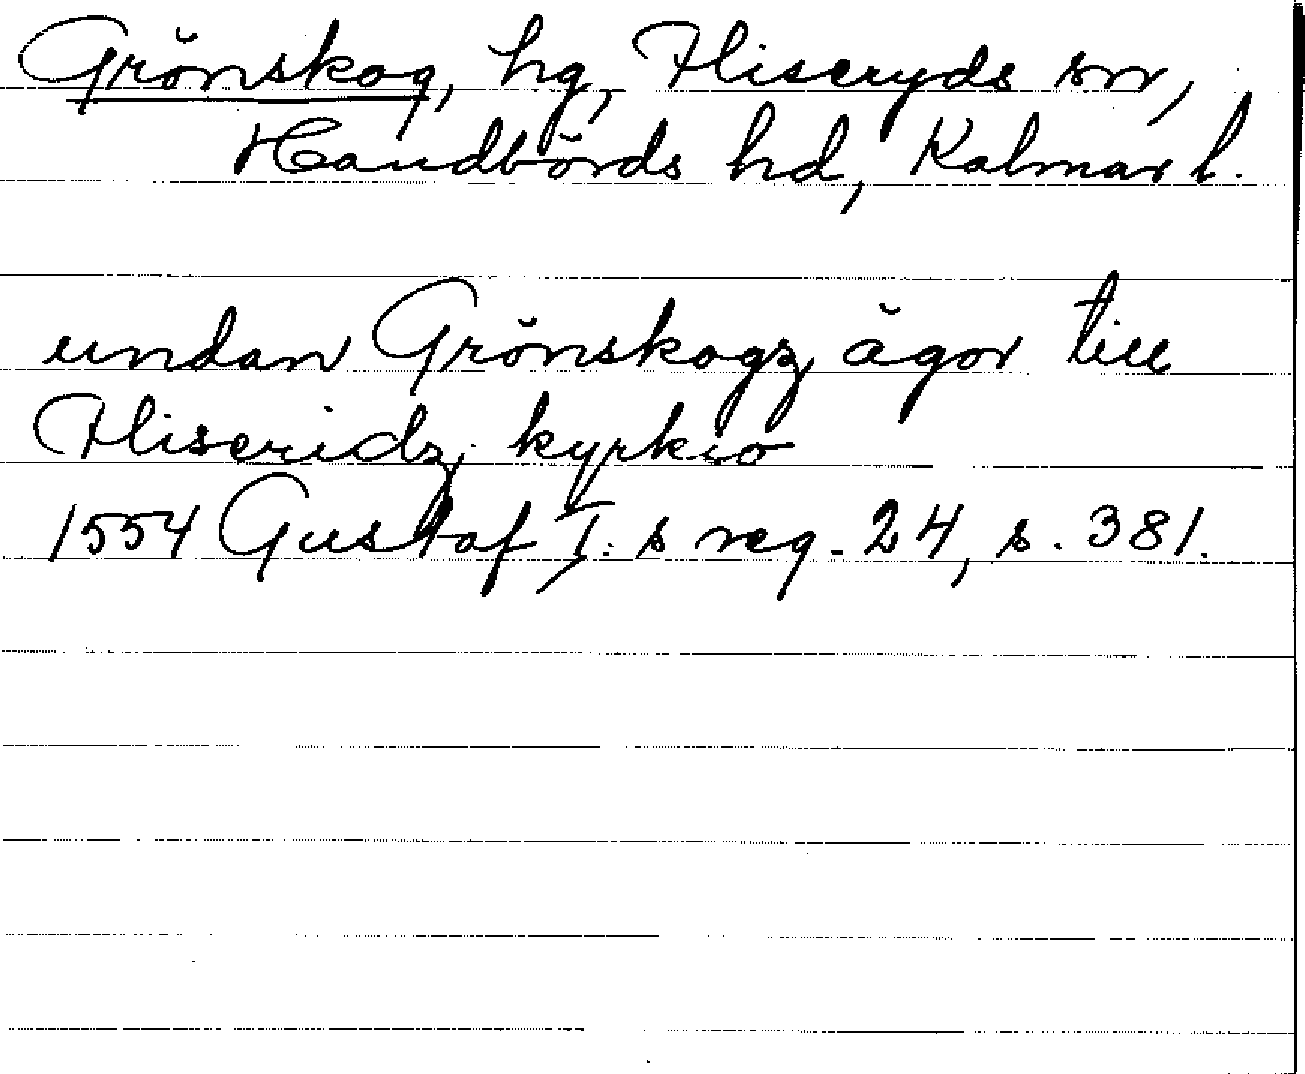 Grönskog, hg, Fliseryds sn,
Handbörds hd, Kalmar l.
undan Grönskogz ägor till
Fliseridz kyrkio
1554 Gustaf I:s reg. 24, s. 381.